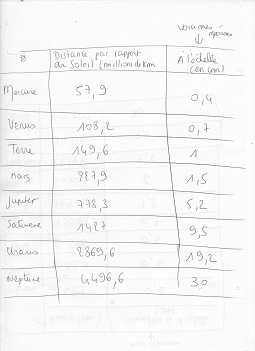 vraies
réponses
Distance par rapport
au Soleil (millions de km
A l'échelle
(en cm)
Mercure 57,9 0,4
Vénus 108,2 0,7
Terre 149,6 1
Mars 227,9 1,5
Jupiter 778,3 5,2
Saturne 1427 9,5
Uranus 2869,6 19,2
Neptune 4496,6 30